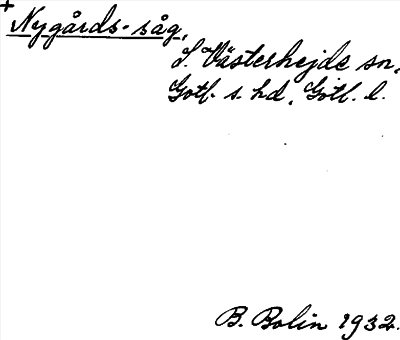 +
Nygårds-såg,
S. Västerhejde sn,
Gotl. s. hd, Gotl. l.
B. Bolin 1932.